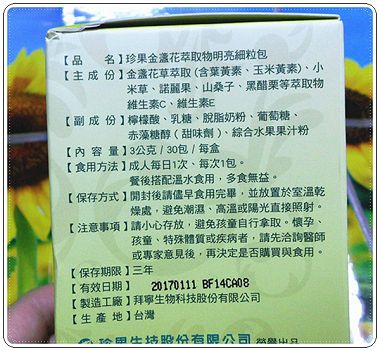 【品　　名】珍果金盞花萃取物明亮細粒包
【主 成 份】金盞花草萃取 (含葉黃素、玉米黃素)、小
米草、諾麗果、山桑子、黑醋栗等萃取物
維生素C、維生素E
【副 成 份】檸檬酸、乳糖、脫脂奶粉、葡萄糖、
赤藻糖醇 ( 甜味劑 )、綜合水果果汁粉
【內 容 量】3公克 / 30包 / 每盒
【食用方法】成人每日1次、每次1包。
餐後搭配溫水食用，多食無益。
【保存方式】開封後請儘早食用完畢，並放置於室溫乾
燥處，避免潮濕、高溫或陽光直接照射。
【注意事項】請小心存放，避免孩童自行拿取。懷孕、
孩童、特殊體質或疾病者，請先洽詢醫師
或專家意見後，再決定是否購買與食用。
【保存期限】三年
【有效日期】 20170111 BF14CA08
【製造工廠】拜寧生物科技股份有限公司
【生 產 地】台灣
珍果生技股份有限公司 榮譽出品